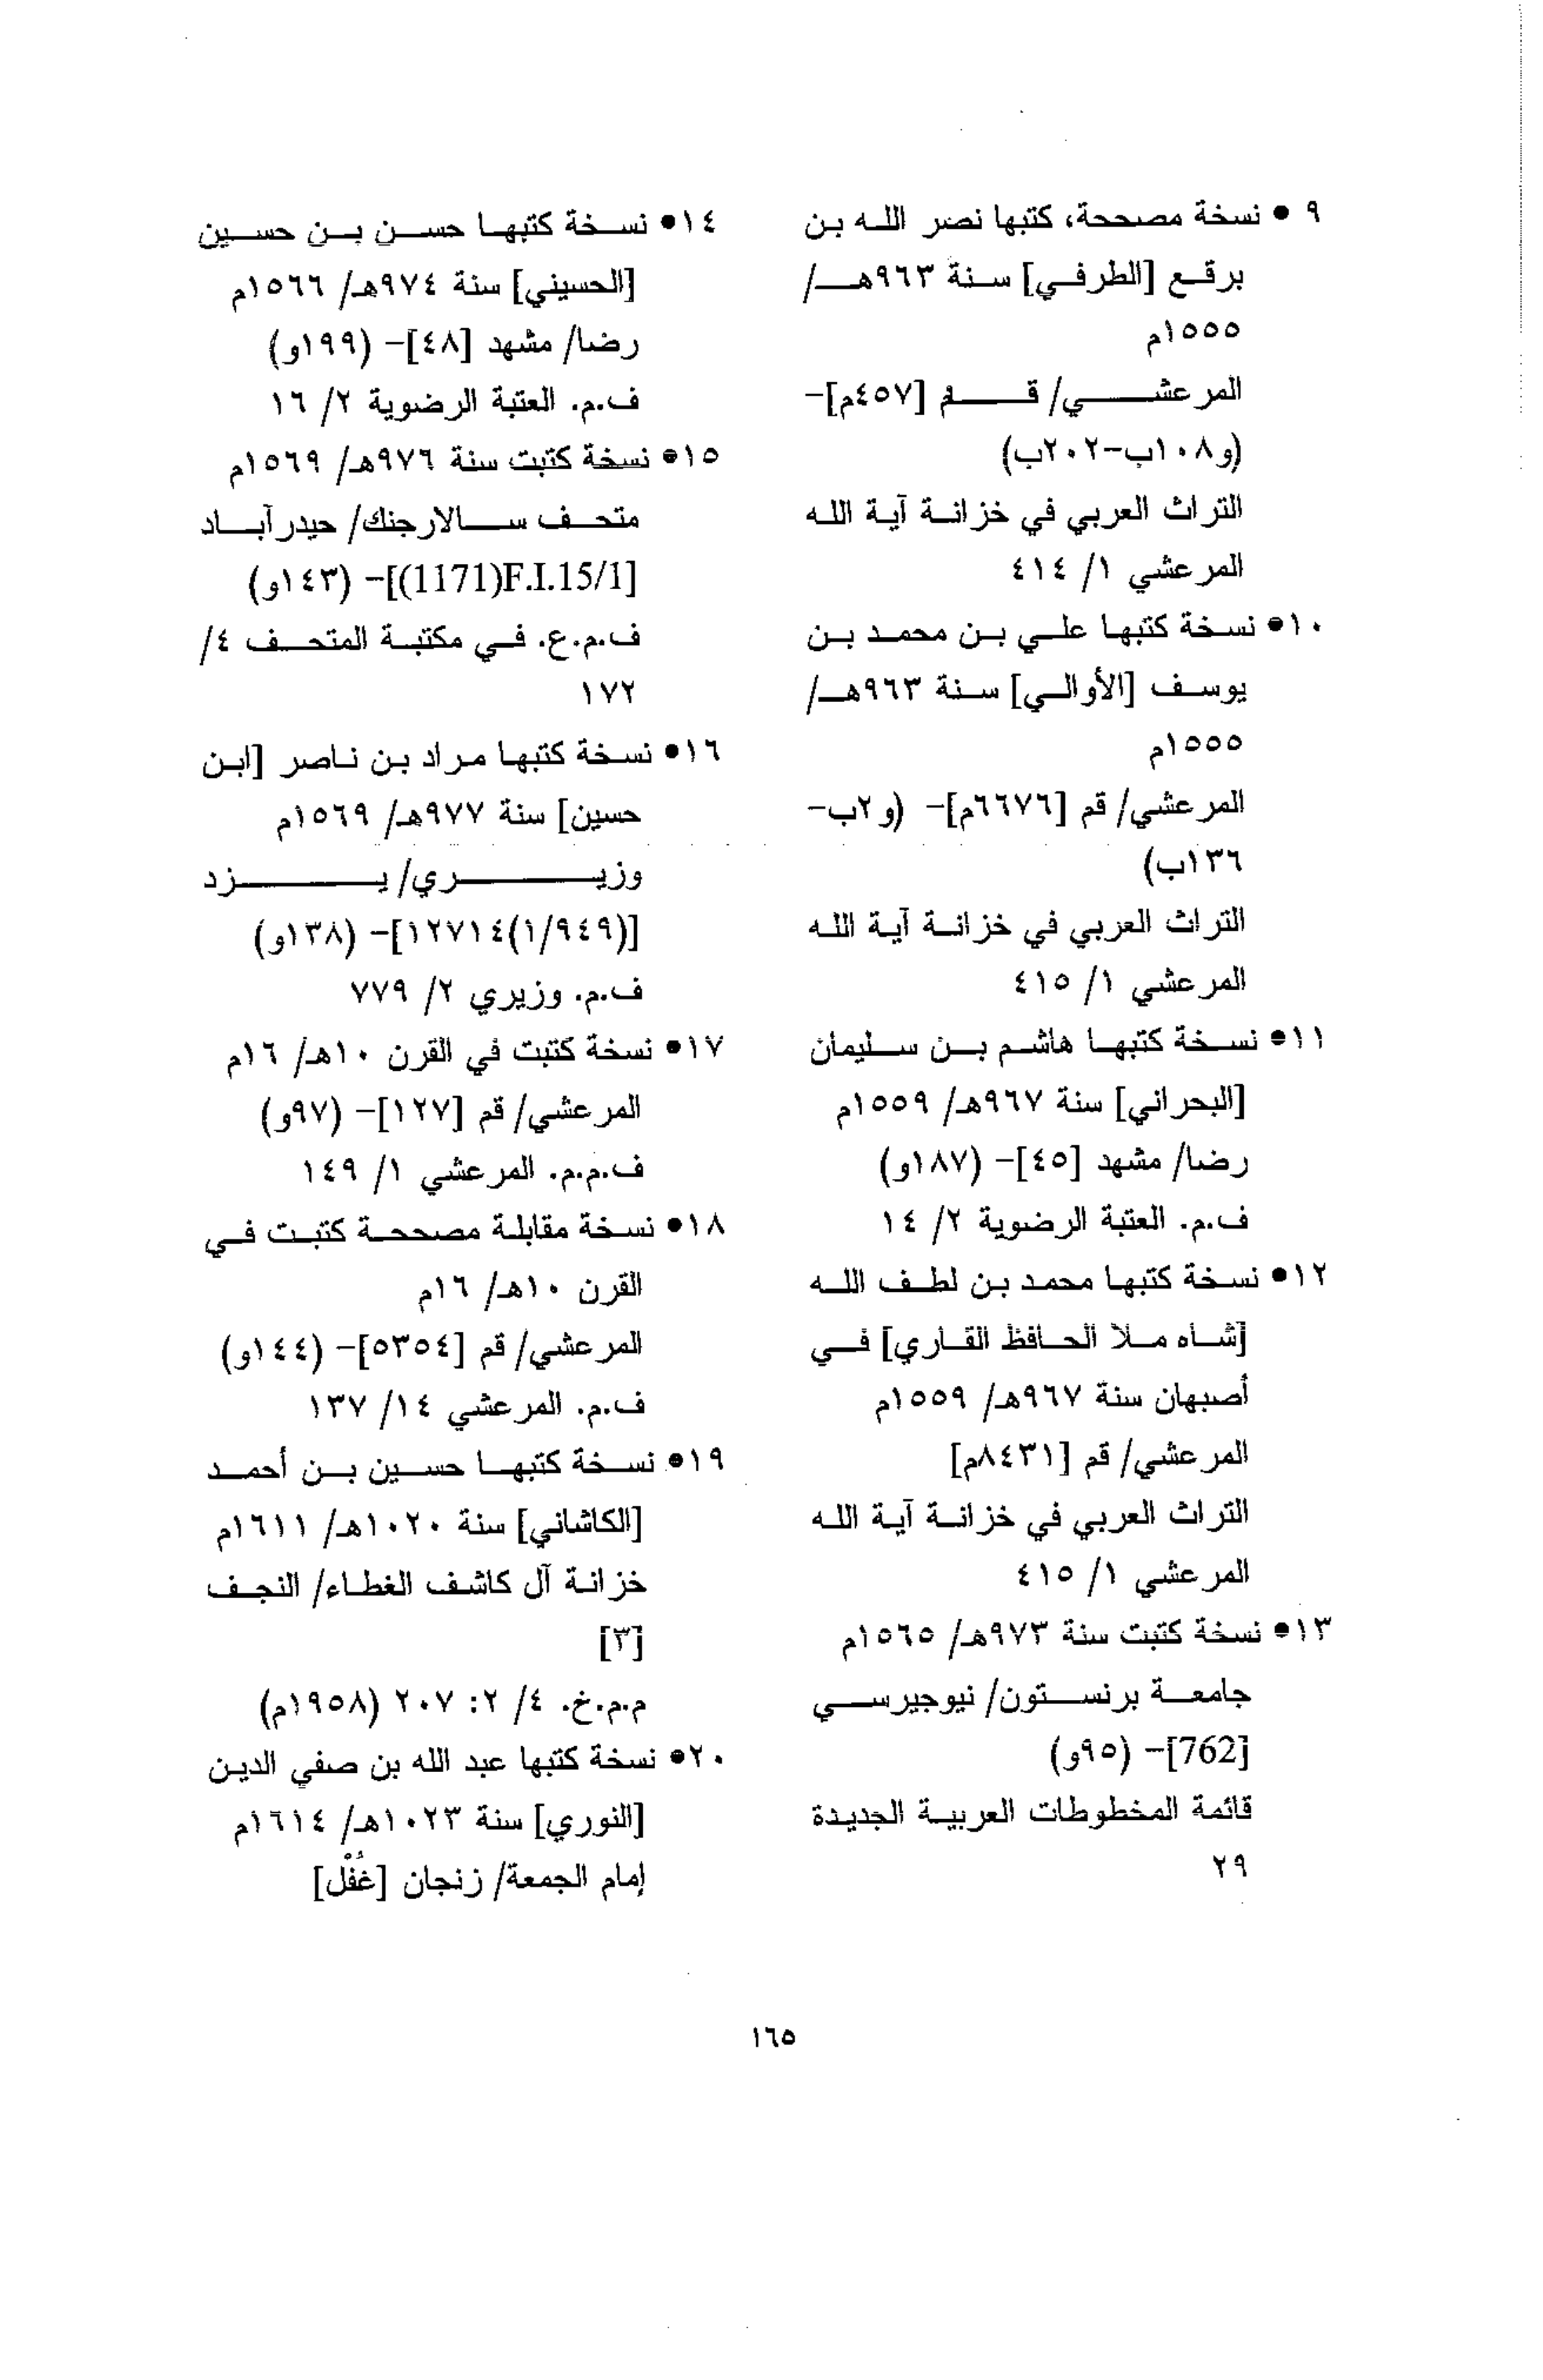 ٩ • نسخة مصححة، كتبها نصر الله بن
برقع [الطرفي] سنة ٩٦٣هـ/
١٥٥٥م
المرعشي/ قم [٤٥٧م]-
(و١٠٨ب-٢٠٢ب)
التراث العربي في خزانة آية الله
المرعشي ١/ ٤١٤
١٠• نسخة كتبها علي بن محمد بن
يوسف [الأوالي] سنة ٩٦٣هـ/
١٥٥٥م
المرعشي/ قم [٦٦٧٦م]- (و٢ب-
١٣٦ب)
التراث العربي في خزانة آية الله
المرعشي ١/ ٤١٥
١١• نسخة كتبها هاشم بن سليمان
[البحراني] سنة ٩٦٧هـ/ ١٥٥٩م
رضا/ مشهد [٤٥]- (١٨٧و)
ف.م. العتبة الرضوية ٢/ ١٤
١٢• نسخة كتبها محمد بن لطف الله
[شاه ملا الحافظ القاري] في
أصبهان سنة ٩٦٧هـ/ ١٥٥٩م
المرعشي/ قم [٨٤٣١م]
التراث العربي في خزانة آية الله
المرعشي ١/ ٤١٥
١٣• نسخة كتبت سنة ٩٧٣هـ/ ١٥٦٥م
جامعة برنستون/ نيوجيرسي
[762]- (٩٥و)
قائمة المخطوطات العربية الجديدة
٢٩
١٤• نسخة كتبها حسن بن حسين
[الحسيني] سنة ٩٧٤هـ/ ١٥٦٦م
رضا/ مشهد [٤٨]- (١٩٩و)
ف.م. العتبة الرضوية ٢/ ١٦
١٥• نسخة كتبت سنة ٩٧٦هـ/ ١٥٦٩م
متحف سالارجنك/ حيدرآباد
[F.I.15/1(1171)]- (١٤٣و)
ف.م.ع. في مكتبة المتحف ٤/
١٧٢
١٦• نسخة كتبها مراد بن ناصر [ابن
حسين] سنة ٩٧٧هـ/ ١٥٦٩م
وزيري/ يزد
[(١/٩٤٩)١٢٧١٤]- (١٣٨و)
ف.م. وزيري ٢/ ٧٧٩
١٧• نسخة كتبت في القرن ١٠هـ/ ١٦م
المرعشي/ قم [١٢٧]- (٩٧و)
ف.م.م. المرعشي ١/ ١٤٩
١٨• نسخة مقابلة مصححة كتبت في
القرن ١٠هـ/ ١٦م
المرعشي/ قم [٥٣٥٤]- (١٤٤و)
ف.م. المرعشي ١٤/ ١٣٧
١٩• نسخة كتبها حسين بن أحمد
[الكاشاني] سنة ١٠٢٠هـ/ ١٦١١م
خزانة آل كاشف الغطاء/ النجف
[٣]
م.م.خ. ٤/ ٢: ٢٠٧ (١٩٥٨م)
٢٠• نسخة كتبها عبد الله بن صفي الدين
[النوري] سنة ١٠٢٣هـ/ ١٦١٤م
إمام الجمعة/ زنجان [غُفْل]
١٦٥